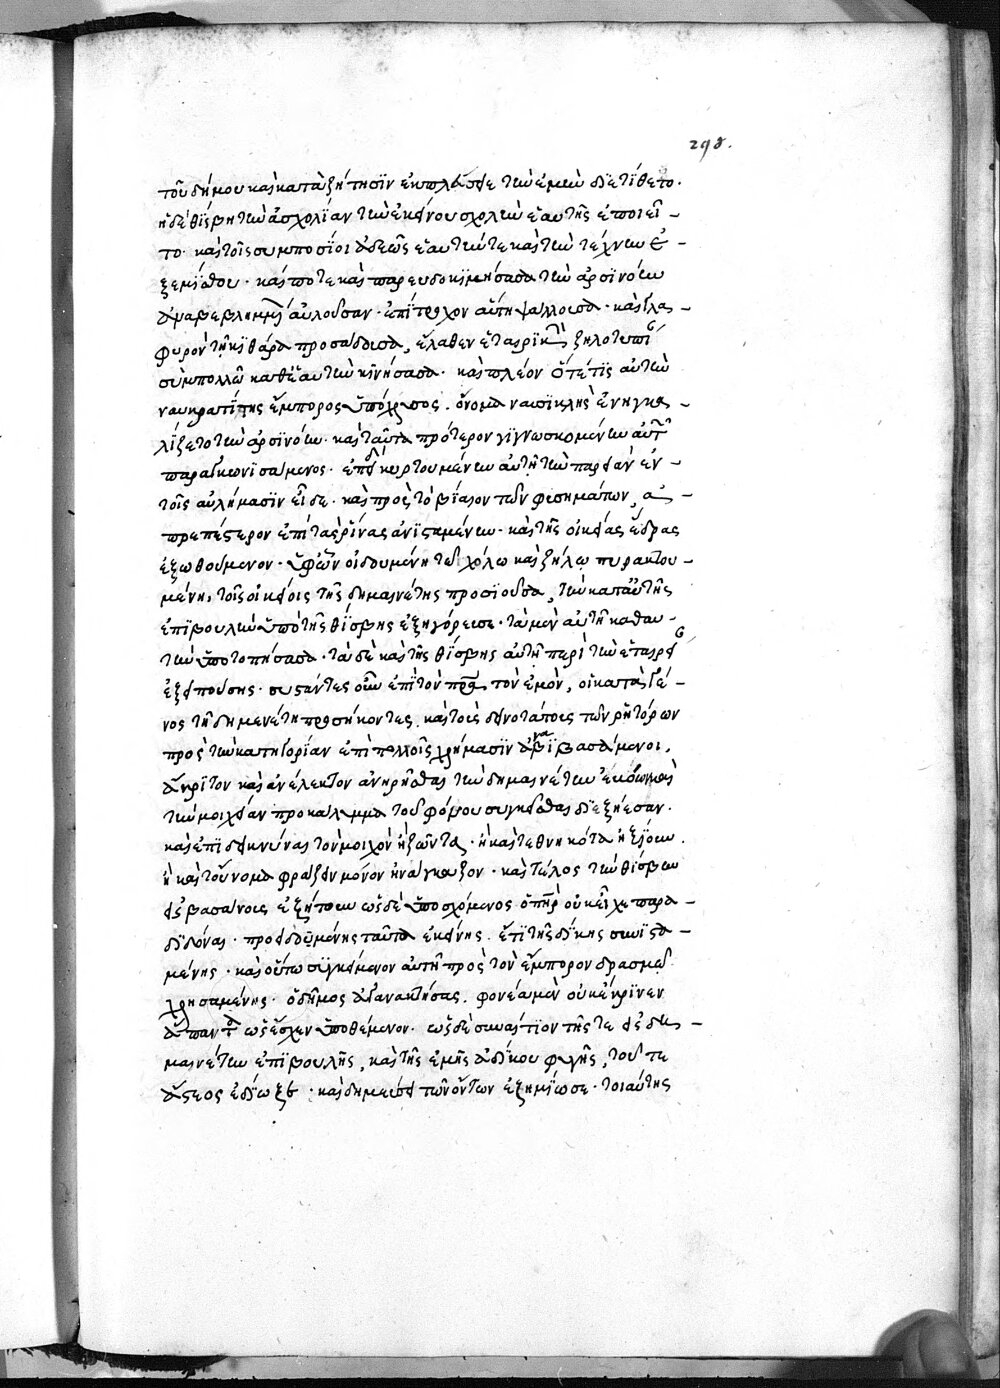 298.
τοῦ δήμου καὶ κατὰ ζήτησιν ἐκπλεῦσαι τῶν ἐμῶν διετίθετο.
ἡ δὲ θίσβη τὴν ἀσχολίαν τὴν ἐκείνου σχολὴν ἑαυτῆς ἐποιεῖ-
το. καὶ τοῖς συμποσίοις ἀδεῶς ἑαυτήν τε καὶ τὴν τέχνην ἐ-
ξεμίσθου. καί ποτε καὶ παρευδοκιμήσασα τὴν ἀρσινόην
ἀναβεβλημμένα αὐλοῦσαν. ἐπίτροχον αὕτη ψάλλουσα. καὶ γλα-
φυρὸν τῇ κιθάρα προσάδουσα, ἔλαθεν ἑταιρικὴν ζηλοτυπίαν
σὺν πολλῶ καθ' ἑαυτὴν κινήσασα. καὶ πλέον ὅτε τὶς αὐτὴν
ναυκρατίτης ἔμπορος ὑπόχρυσος. ὄνομα ναυσικλῆς ἐνηγκα-
λίζετο τὴν ἀρσινόην. καὶ ταῦτα πρότερον γιγνωσκομένην αὐτῶ
παραγκωνισάμενος. ἐπειδὴ κυρτουμένην αὐτῇ τὴν παρειὰν ἐν
τοῖς αὐλήμασιν εἶδε. καὶ πρὸς τὸ βίαιον τῶν φυσημάτων, ἀ-
πρεπέστερον ἐπὶ τὰς ῥῖνας ἀνισταμένην. καὶ τῆς οἰκείας ἕδρας
ἐξωθούμενον. ὑφ' ὧν οἰδουμένη τῶ χόλω καὶ ζήλω πυρακτου-
μένη, τοῖς οἰκείοις τῆς δημαινέτης προσιοῦσα, τὴν κατ' αὐτῆς
ἐπιβουλὴν ὑπὸ τῆς θίσβης ἐξηγόρευσε. τὰ μὲν αὐτὴ καθ' αυ-
τὴν ὑποτοπήσασα. τὰ δὲ καὶ τῆς θίσβης αὐτῇ περὶ τὴν ἑταιρεί
ἐξειπούσης. συστάντες οὖν ἐπὶ τὸν πατέρα τὸν ἐμὸν, οἱ κατὰ γέ-
νος τῇ δημενέτη προσήκοντες. καὶ τοὺς δεινοτάτους τῶν ῥητόρων
πρὸς τὴν κατηγορίαν ἐπὶ πολλοῖς χρήμασιν ἀναβιβασάμενοι,
ἄκριτον καὶ ἀνέλεκτον ἀνηρῆσθαι τὴν δημαινέτην ἐκβοῶντες καὶ
τὴν μοιχείαν προκάλυμμα τοῦ φόνου συγκεῖσθαι διεξήεσαν.
καὶ ἐπιδεικνύναι τὸν μοιχὸν ἢ ζῶντα. ἢ καὶ τεθνηκότα ἠξίουν.
ἢ καὶ τοὔνομα φράζειν μόνον ἠνάγκαζον. καὶ τέλος τὴν θίσβην
εἰς βασάνους ἐξήτουν ὡς δὲ ὑποσχόμενος ὁ πατὴρ οὐκ εἶχε παρα-
διδόναι. προειδομένης ταῦτα ἐκείνης. ἔτι τῆς δίκης συνιστα-
μένης. καὶ οὕτω συγκείμενον αὐτῇ πρὸς τὸν ἔμπορον δρασμῶ
χρησαμένης. ὁ δῆμος ἀγανακτήσας. φονέα μὲν οὐκ ἔκρινεν
ἅπαντα ὡς ἔσχεν ὑποθέμενον. ὡς δὲ συναίτιον τῆς τε εἰς δη-
μαινέτην ἐπιβουλῆς, καὶ τῆς ἐμῆς ἀδίκου φυγῆς, τοῦ τε
ἄστεος ἐδίωξε. καὶ δημεύσει τῶν ὄντων ἐζημίωσε. τοιαύτης